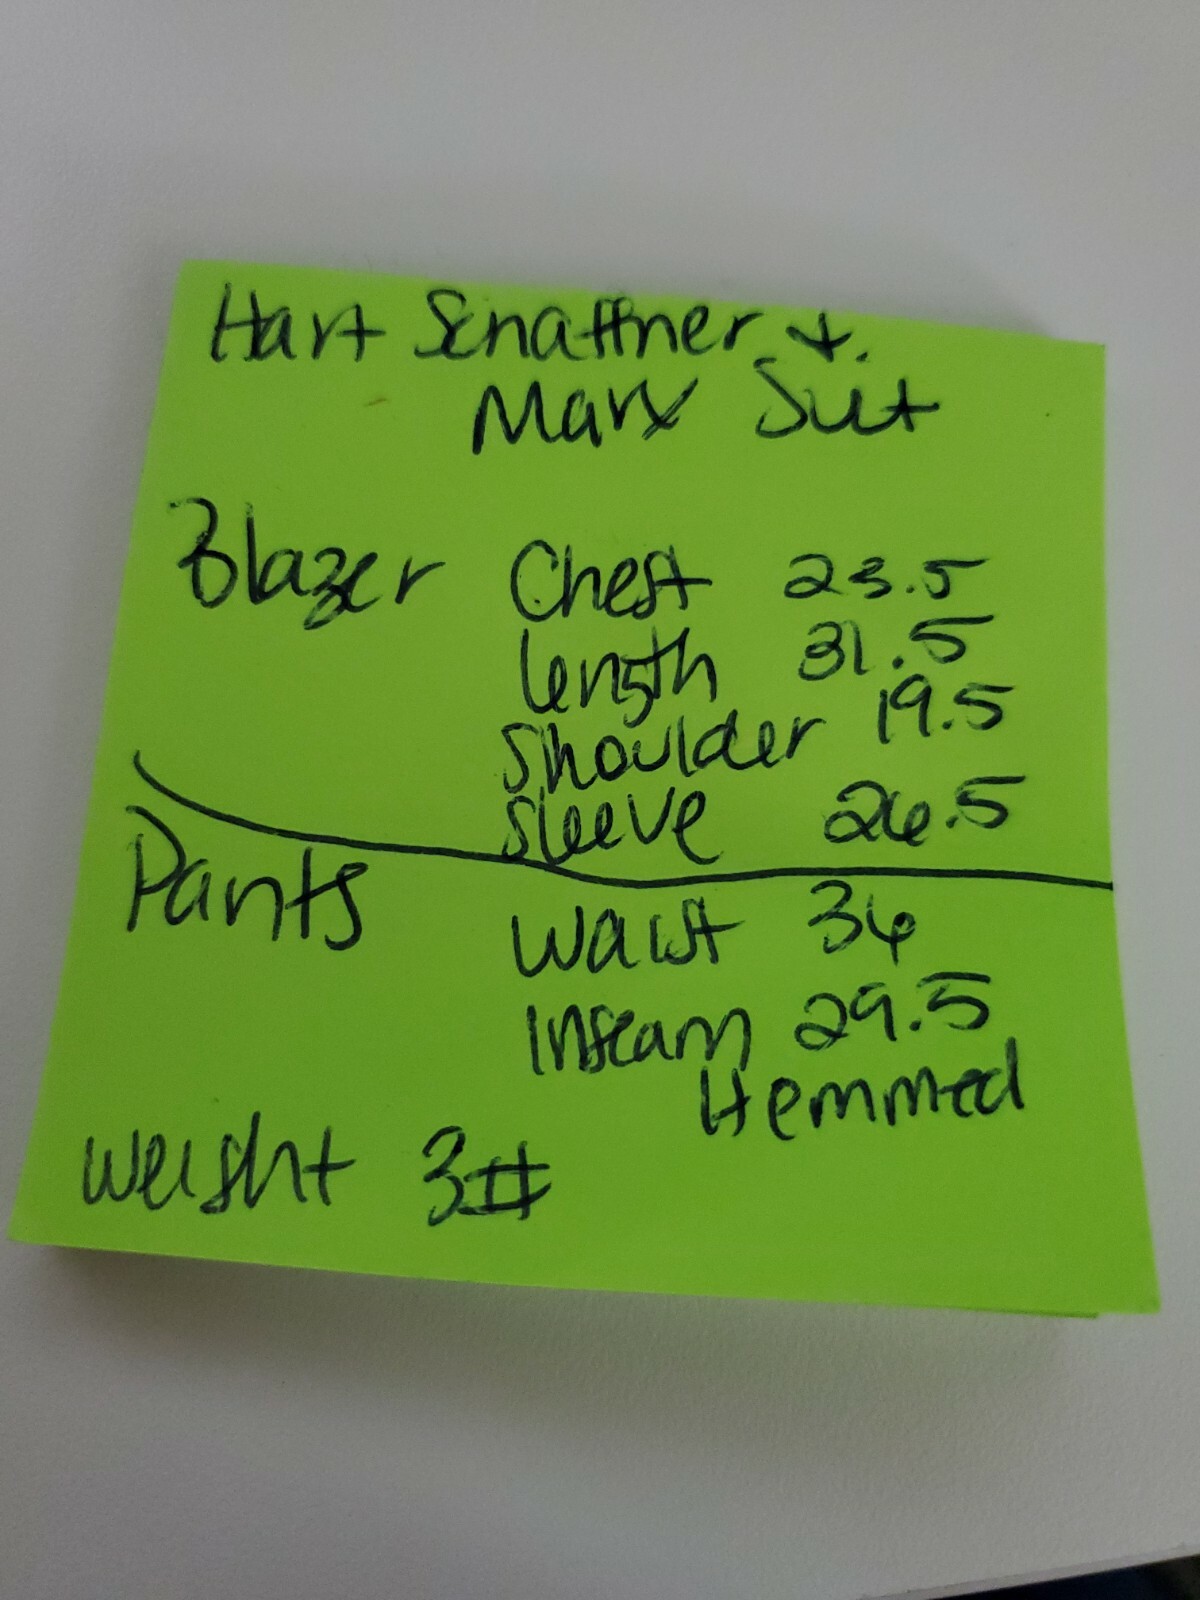 Hart Schaffner +.
Marx Suit
Blazer Chest 23.5
length 31.5
Shoulder 19.5
Sleeve 26.5
Pants Waist 36
Inseam 29.5
Hemmed
Weight 3#